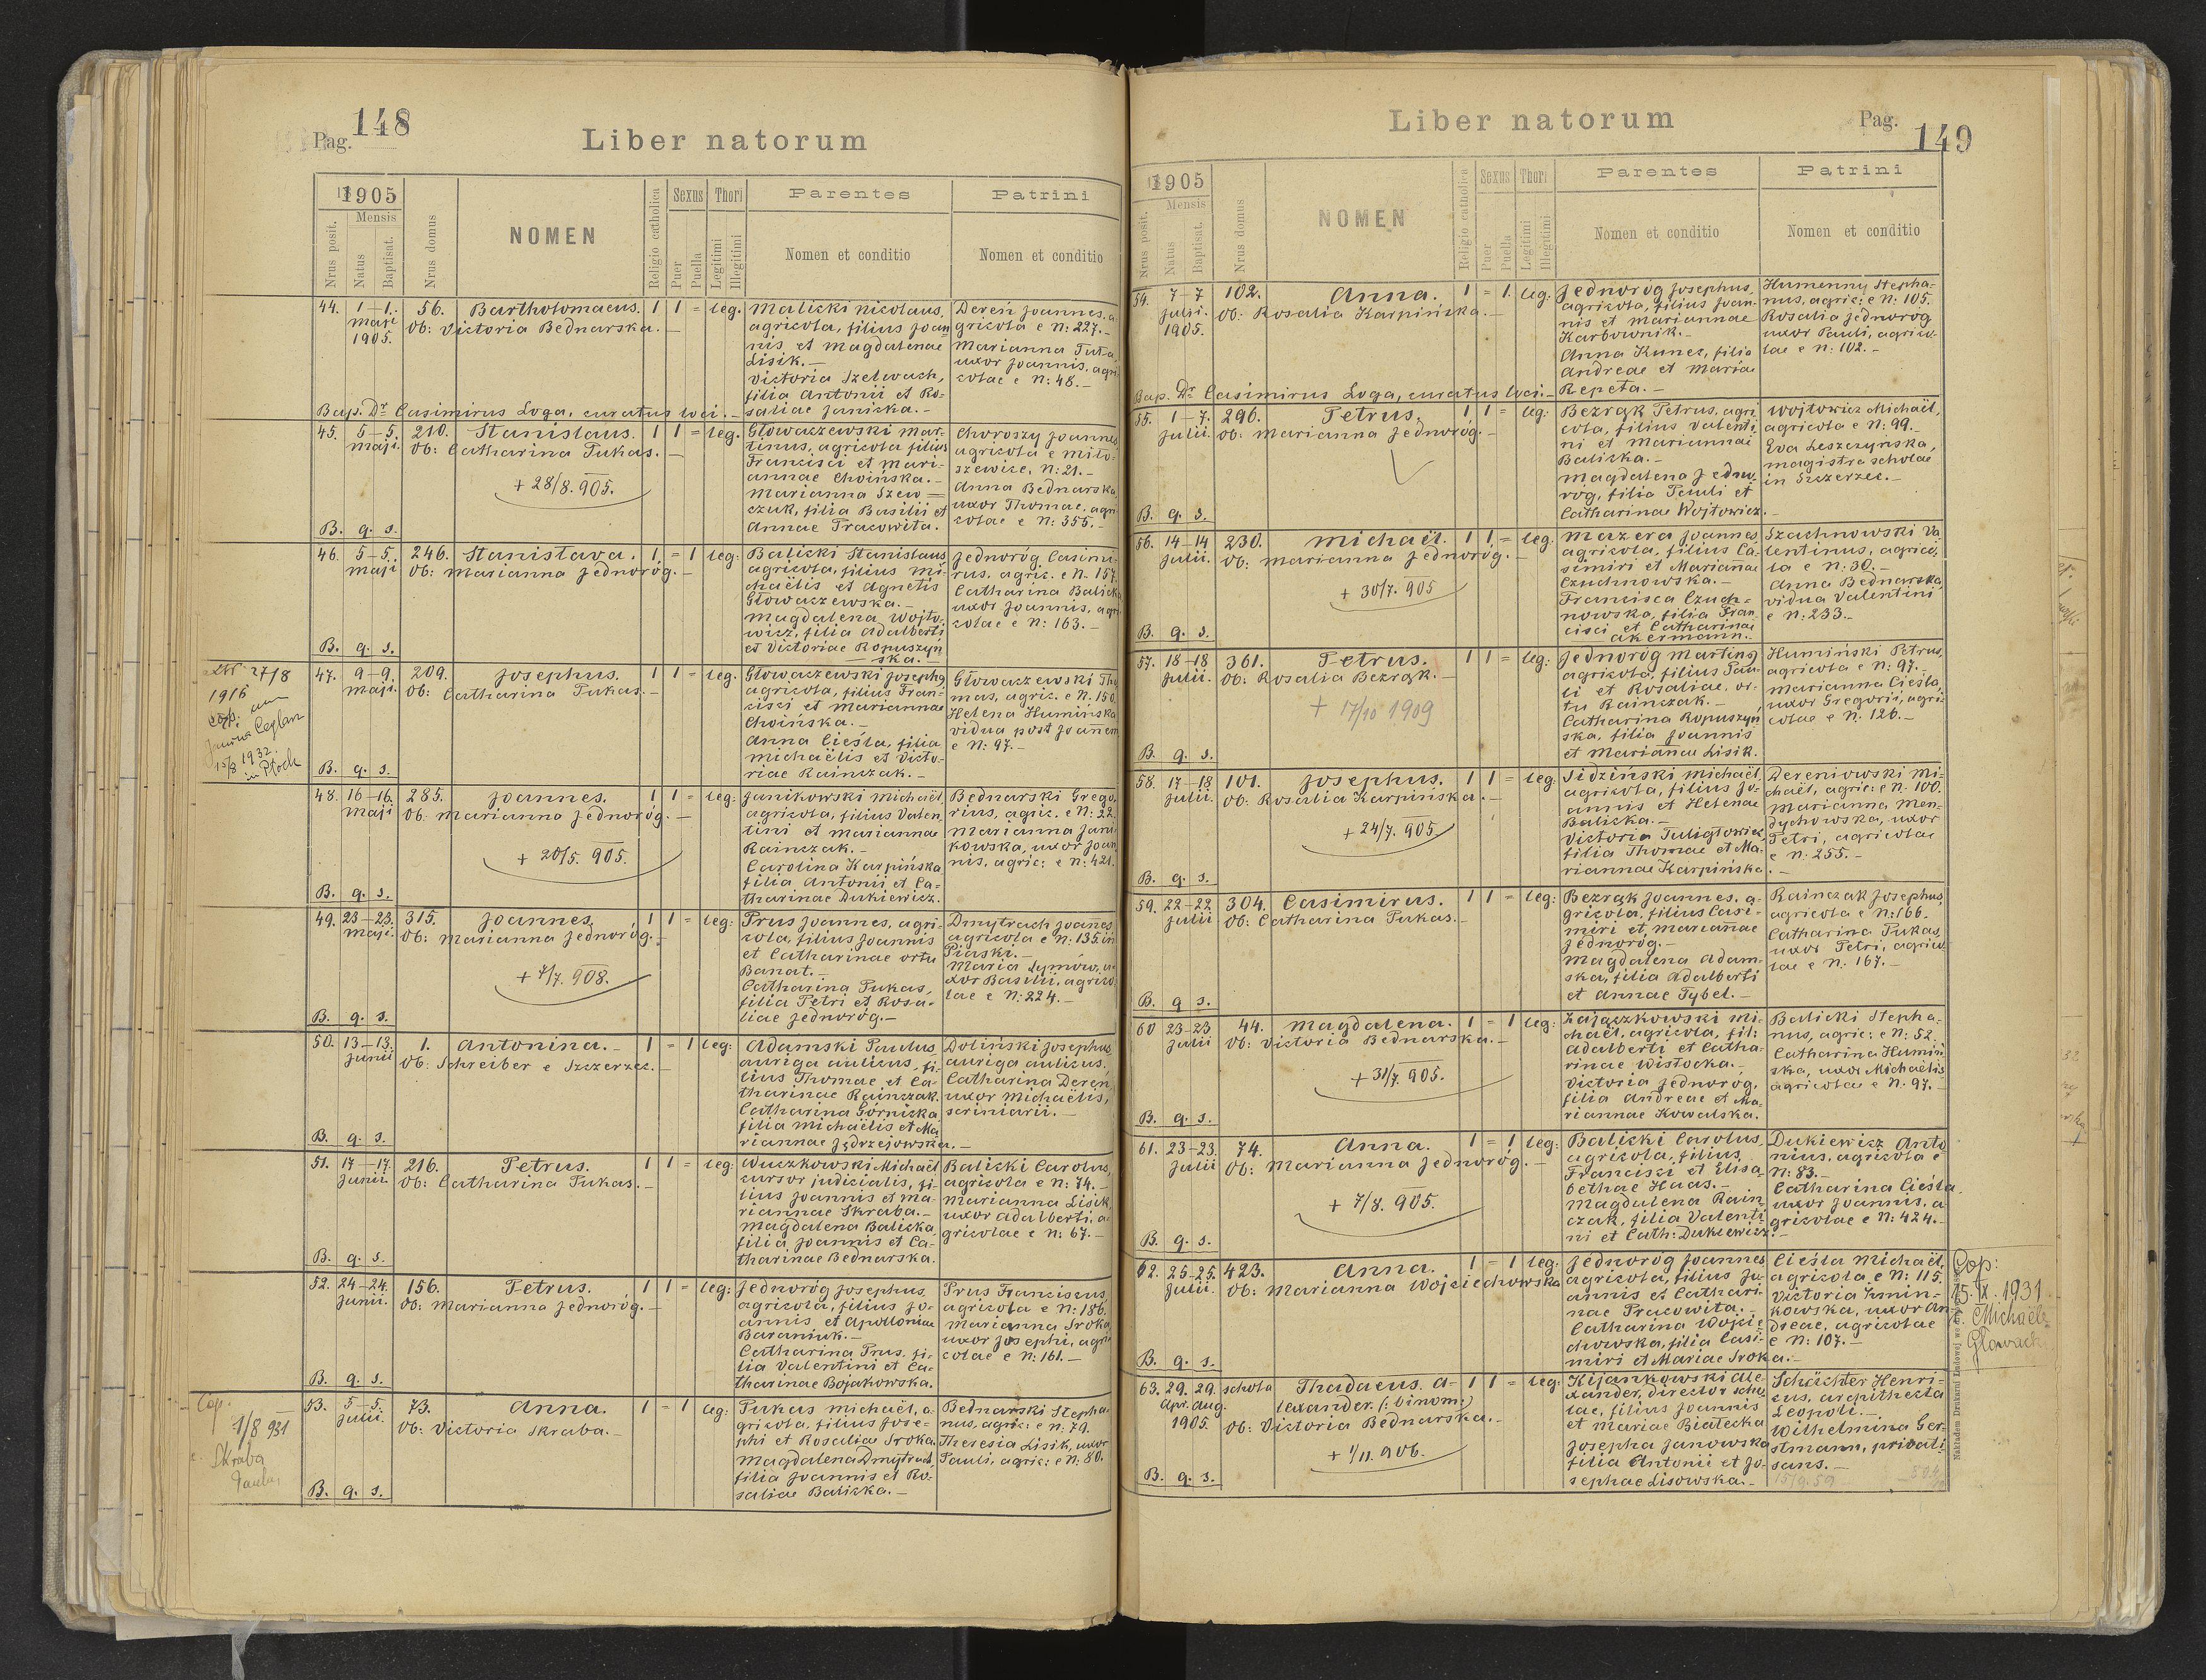 148
Pag.
Liber natorum
1905
Mensis
Nrus posit.
Natus
Baptisat.
Nrus domus
NOMEN
Religio catholica
Sexus
Puer
Puella
Thori
Legitimi
Illegitimi
Parentes
Nomen et conditio
Patrini
Nomen et conditio
44. 1–1. maji 1905. 56. Bartholomaeus. 1 1 = leg.
Ob: Victoria Bednarska.–
Malicki Nicolaus,
agricola, filius Joan
nis et Magdalenae
Lisik.–
Victoria Szelwach,
filia Antonii et Ro-
saliae Janicka.–
Dereń Joannes, a
gricola e N: 227.–
Marianna
uxor Joannis, agri
colae e N: 48.–
Bap. Dr Casimirus Loga, curatus loci.–
45. 5–5. maji. 210. Stanislaus. 1 1 = leg.
Ob: Catharina Pukas.–
+ 28/8. 905.
Głowaczewski Mar-
tinus, agricola filius
Francisci et Mari-
annae Choińska.–
Marianna Szew=
czuk, filia Basilii et
Annae Pracowita.
Choroszy Joannes
agricola e Miło-
szewice, N: 21.–
Anna Bednarska,
uxor Thomae, agri
colae e N: 355.–
B. q. s.
46. 5–5. maji 246. Stanislava. 1 = 1 leg:
Ob: Marianna Jednoróg.–
Balicki Stanislaus
agricola, filius Mi-
chaëlis et Agnetis
Głowaczewska.–
Magdalena Wojto-
wicz, filia Adalberti
et Victoriae Ropuszyn
ska.–
Jednoróg Casimi-
rus, agric. e N. 157.
Catharina Balicka
uxor Joannis, agri
colae e N: 163.–
B. q. s.
2718
1916
Cop. cum
Janina
15/8 1932.
in Płock
47. 9–9. maji. 209. Josephus. 1 1 = leg.
Ob: Catharina Pukas.–
Głowaczewski Josephq
agricola, filius Fran-
cisci et Mariannae
Choińska.–
Anna Cieśla, filia
Michaëlis et Victo-
riae Rainczak.–
Głowaczewski Tho
mas, agric. e N. 150.
Helena Humińska
vidua post Joannem
e N: 97.–
B. q. s.
48. 16–16. maji 285. Joannes. 1 1 = leg:
Ob: Marianna Jednoróg.–
+ 20/5. 905.
Janikowski Michaël,
agricola, filius Valen
tini et Mariannae
Rainczak.–
Carolina Karpińska
filia Antonii et Ca-
tharinae Dukiewicz.
Bednarski Grego-
rius, agric. e N: 22.
Marianna Jani
kowska, uxor Joan
nis, agric: e N: 421.
B. q. s.
49. 23–23. maji. 315. Joannes. 1 1 = leg:
Ob: Marianna Jednoróg.–
+ 7/7. 908.
Prus Joannes, agri-
cola, filius Joannis
et Catharinae ortu
Banat.–
Catharina Pukas,
filia Petri et Rosa-
liae Jednoróg.–
Dmytrach Joannes
agricola e N: 135 in
Piaski.–
Maria Lymów, u-
xor Basilii, agrico
lae e N: 224.–
B. q. s.
50. 13–13. Junii 1. Antonina.– 1 = 1 leg:
Ob: Schreiber e Szczerzec.–
Adamski Paulus
auriga aulicus, fi-
lius Thomae et Ca-
tharinae Rainczak.
Catharina Górnicka
filia Michaëlis et Ma
riannae Jędrzejowska.–
Doliński Josephus
auriga aulicus.
Catharina Dereń,
uxor Michaëlis,
scriniarii.–
B. q. s.
51. 17–17. Junii. 216. Petrus. 1 1 = leg:
Ob: Catharina Pukas.–
Wuczkowski Michaël
cursor judicialis, fi-
lius Joannis et Ma-
riannae Skraba.–
Magdalena Balicka,
filia Joannis et Ca-
tharinae Bednarska.
Balicki Carolus,
agricola e N: 74.–
Marianna Lisik,
uxor Adalberti, a-
gricolae e N: 67.–
B. q. s.
52. 24–24. Junii. 156. Petrus. 1 1 = leg:
Ob: Marianna Jednoróg.–
Jednoróg Josephus
agricola, filius Jo-
annis et Apolloniae
Baraniuk.–
Catharina Prus, fi-
lia Valentini et Ca-
tharinae Bojakowska.
Prus Franciscus
agricola e N: 186.
Marianna Sroka
uxor Josephi, agri
colae e N: 161.–
B. q. s.
Cop.
1/8 931
c. Skraba
Paulus
53. 5–5. Julii. 73. Anna. 1 = 1 leg:
Ob: Victoria Skraba.–
Pukas Michaël, a-
gricola, filius Jose-
phi et Rosaliae Sroka.
Magdalena Dmytrach,
filia Joannis et Ro-
saliae Balicka.–
Bednarski Stepha-
nus, agric: e N: 79.
Theresia Lisik, uxor
Pauli, agric: e N: 80.
B. q. s.
Liber natorum
Pag.
149
1905
Mensis
Nrus posit.
Natus
Baptisat.
Nrus domus
NOMEN
Religio catholica
Sexus
Puer
Puella
Thori
Legitimi
Illegitimi
Parentes
Nomen et conditio
Patrini
Nomen et conditio
54. 7–7 Julii. 1905. 102. Anna. 1 = 1. leg:
Ob: Rosalia Karpińska.–
Jednoróg Josephus,
agricola, filius Joan-
nis et Mariannae
Karbownik.–
Anna Kunec, filia
Andreae et Mariae
Repeta.–
Humenny Stepha-
nus, agric: e N: 105.
Rosalia Jednoróg
uxor Pauli, agrico-
lae e N: 102.–
Bap. Dr Casimirus Loga, curatus loci.–
55. 1–7. Julii. 296. Petrus. 1 1 = leg:
Ob: Marianna Jednoróg.–
Bezrąk Petrus, agri
cola, filius Valenti
ni et Mariannae
Balicka.–
Magdalena Jedno-
róg, filia Pauli et
Catharinae Wojtowicz.–
Wojtowicz Michaël,
agricola e N: 99.–
Eva Leszczyńska,
magistra scholae
in Szczerzec.–
B. q. s.
56. 14–14 Julii. 230. Michaël. 1 1 = leg:
Ob: Marianna Jednoróg.–
+ 30/7. 905
Mazera Joannes
agricola, filius Ca-
simiri et Mariannae
Czuchnowska.–
Francisca Czuch-
nowska, filia Fran
cisci et Catharinae
Akermann.–
Szachnowski Va-
lentinus, agrico-
la e N: 30.–
Anna Bednarska,
vidua Valentini
e N: 233.–
B. q. s.
57. 18–18 Julii. 361. Petrus. 1 1 = leg:
Ob: Rosalia Bezrąk.–
+ 17/10 1909
Jednoróg Martinq
agricola, filius Pau-
li et Rosaliae, or-
tu Rainczak.–
Catharina Ropuszyń
ska, filia Joannis
et Mariannae Lisik.
Humiński Petrus,
agricola e N: 97.–
Marianna Cieśla,
uxor Gregorii, agri-
colae e N. 126.–
B. q. s.
58. 17–18 Julii. 101. Josephus. 1 1 = leg:
Ob: Rosalia Karpińska.–
+ 24/7. 905
Sidziński Michaël,
agricola, filius Jo-
annis et Helenae
Balicka.–
Victoria Tuligłowicz
filia Thomae et Ma-
riannae Karpińska.–
Dereniowski Mi-
chaël, agric: e N. 100.
Marianna Men-
dychowska, uxor
Petri, agricolae
e N: 255.–
B. q. s.
59. 22–22 Julii 304. Casimirus. 1 1 = leg:
Ob: Catharina Pukas.–
Bezrąk Joannes, a-
gricola, filius Casi-
miri et Mariannae
Jednoróg.–
Magdalena Adam-
ska, filia Adalberti
et Annae Tybel.–
Rainczak Josephus,
agricola e N: 166.
Catharina Pukas,
uxor Petri, agrico
lae e N: 167.–
B. q. s.
60 23–23 Julii 44. Magdalena. 1 = 1 leg:
Ob: Victoria Bednarska.–
+ 31/7. 905.
Zajączkowski Mi-
chaël, agricola, fil:
Adalberti et Catha-
rinae Wisłocka.–
Victoria Jednoróg,
filia Andreae et Ma-
riannae Kowalska.
Balicki Stepha-
nus, agric: e N: 52.
Catharina Humiń
ska, uxor Michaëlis
agricolae e N. 97.–
B. q. s.
61. 23–23. Julii 74. Anna. 1 = 1 leg:
Ob: Marianna Jednoróg.–
+ 7/8. 905.
Balicki Carolus,
agricola, filius
Francisci et Elisa
bethae Haas.–
Magdalena Rain
czak, filia Valenti
ni et Cath: Dukiewicz.–
Dukiewicz Anto
nius, agricola e
N: 83.–
Catharina Cieśla,
uxor Joannis, a
gricolae e N: 424.–
B. q. s.
62. 25–25. Julii. 423. Anna. 1 = 1 leg.
Ob: Marianna Wojciechowska
Jednoróg Joannes
agricola, filius Jo-
annis et Cathari-
nae Pracowita.–
Catharina Wojcie
chowska, filia Casi-
miri et Mariae Sroka.–
Cieśla Michaël,
agricola e N: 115.
Victoria
kowska, uxor An
dreae, agricolae
e N: 107.–
B. q. s.
Cop:
15.IX.1931
c. Michaële
Głowack
63. 29. Apr. 29. Aug. 1905. schola Thadaeus. A- 1 1 = leg:
lexander. (: binom:)
Ob: Victoria Bednarska.–
+ 1/11. 906.
Kijankowski Ale
xander, director scho
lae, filius Joannis
et Mariae Białecka
Josepha Janowska
filia Antonii et Jo-
sephae Lisowska.–
Schächter Henri-
cus, archithecta
Leopoli.–
Wilhelmina Ger-
stmann, privati-
sans.–
15/9.59
B. q. s.